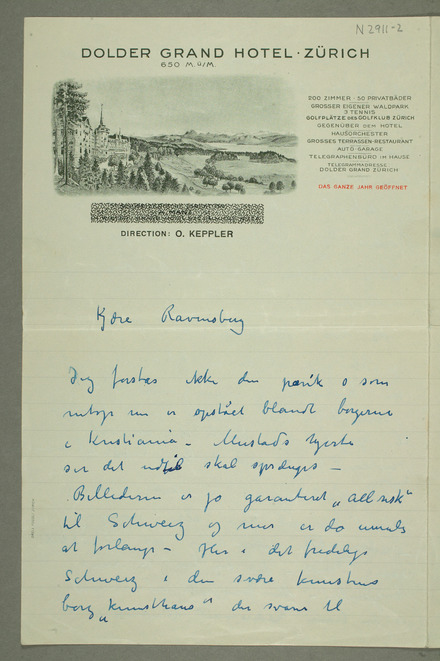 N 2911-2
DOLDER GRAND HOTEL · ZÜRICH
650 M. ü/M.
200 ZIMMER · 50 PRIVATBÄDER
GROSSER EIGENER WALDPARK
3 TENNIS
GOLFPLÄTZE DES GOLFKLUB ZÜRICH
GEGENÜBER DEM HOTEL
HAUSORCHESTER
GROSSES TERRASSEN-RESTAURANT
AUTO-GARAGE
TELEGRAPHENBÜRO IM HAUSE
TELEGRAMMADRESSE
DOLDER GRAND ZÜRICH
DAS GANZE JAHR GEÖFFNET
DIRECTION: O. KEPPLER
Kjære Ravensberg
Jeg forstår ikke den panik som
netop nu er opstået blandt borgerne
i Kristiania – Mustads hjerte
ser det ud skal sprænges –
Billederne er jo garanteret „all risk"
til Schweiz og mer er da umulig
at forlange – Her i det fredelige
Schweiz i den svære kunstens
borg „kunsthaus" der svarer til